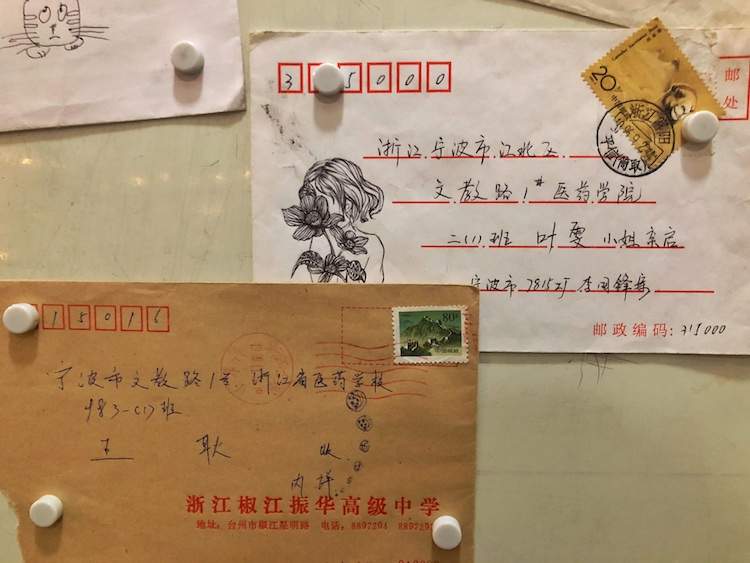 3 5000
20
邮
处
浙江宁波市江北区
文教路1#医药学院
二(1)班 叶雯 小姐亲启
宁波市 7815
邮政编码: 315000
15016
80
宁波市文教路1号 浙江省医药学校
983-(1)班
王 耿 收
内详
浙江椒江振华高级中学
地址：台州市椒江星明路 电话：8897204 889720